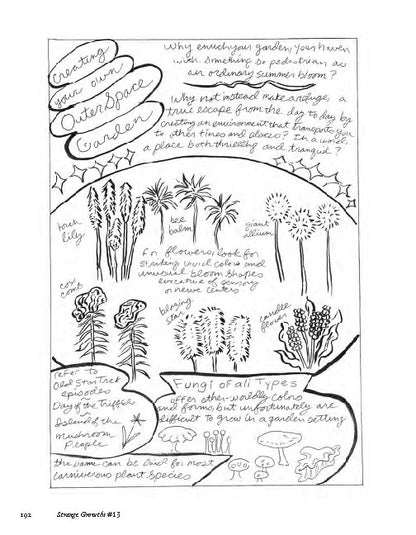 Creating
your own
OuterSpace
Garden
Why enrich your garden, your haven
with something so pedestrian as
an ordinary summer bloom?
Why not instead make a refuge, a
true escape from the day to day by
creating an environment that transports you
to other times and places? In a word,
a place both thrilling and tranquil?
torch
lily
bee
balm
giant
allium
In flowers, look for
striking vivid colors and
unusual bloom shapes
evocative of sensory
or nerve centers
cox
comb
blazing
star
candle
flower
refer to
Old Star Trek
episodes
Day of the Triffids
Island of the
Mushroom
People
Fungi of all Types
offer other-worldly colors
and forms but unfortunately are
difficult to grow in a garden setting
the same can be said for most
carnivorous plant species
192 Strange Growths #13